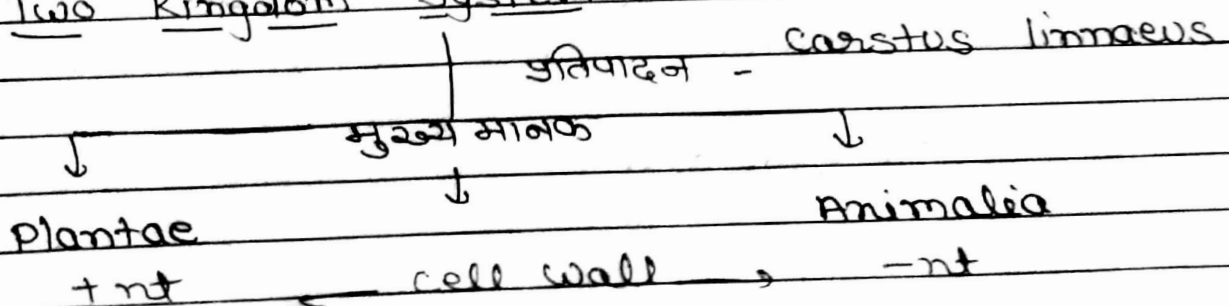 Two Kingdom System
प्रतिपादन - Carstus linnaeus
मुख्य मानक
Plantae Animalia
+nt cell wall -nt